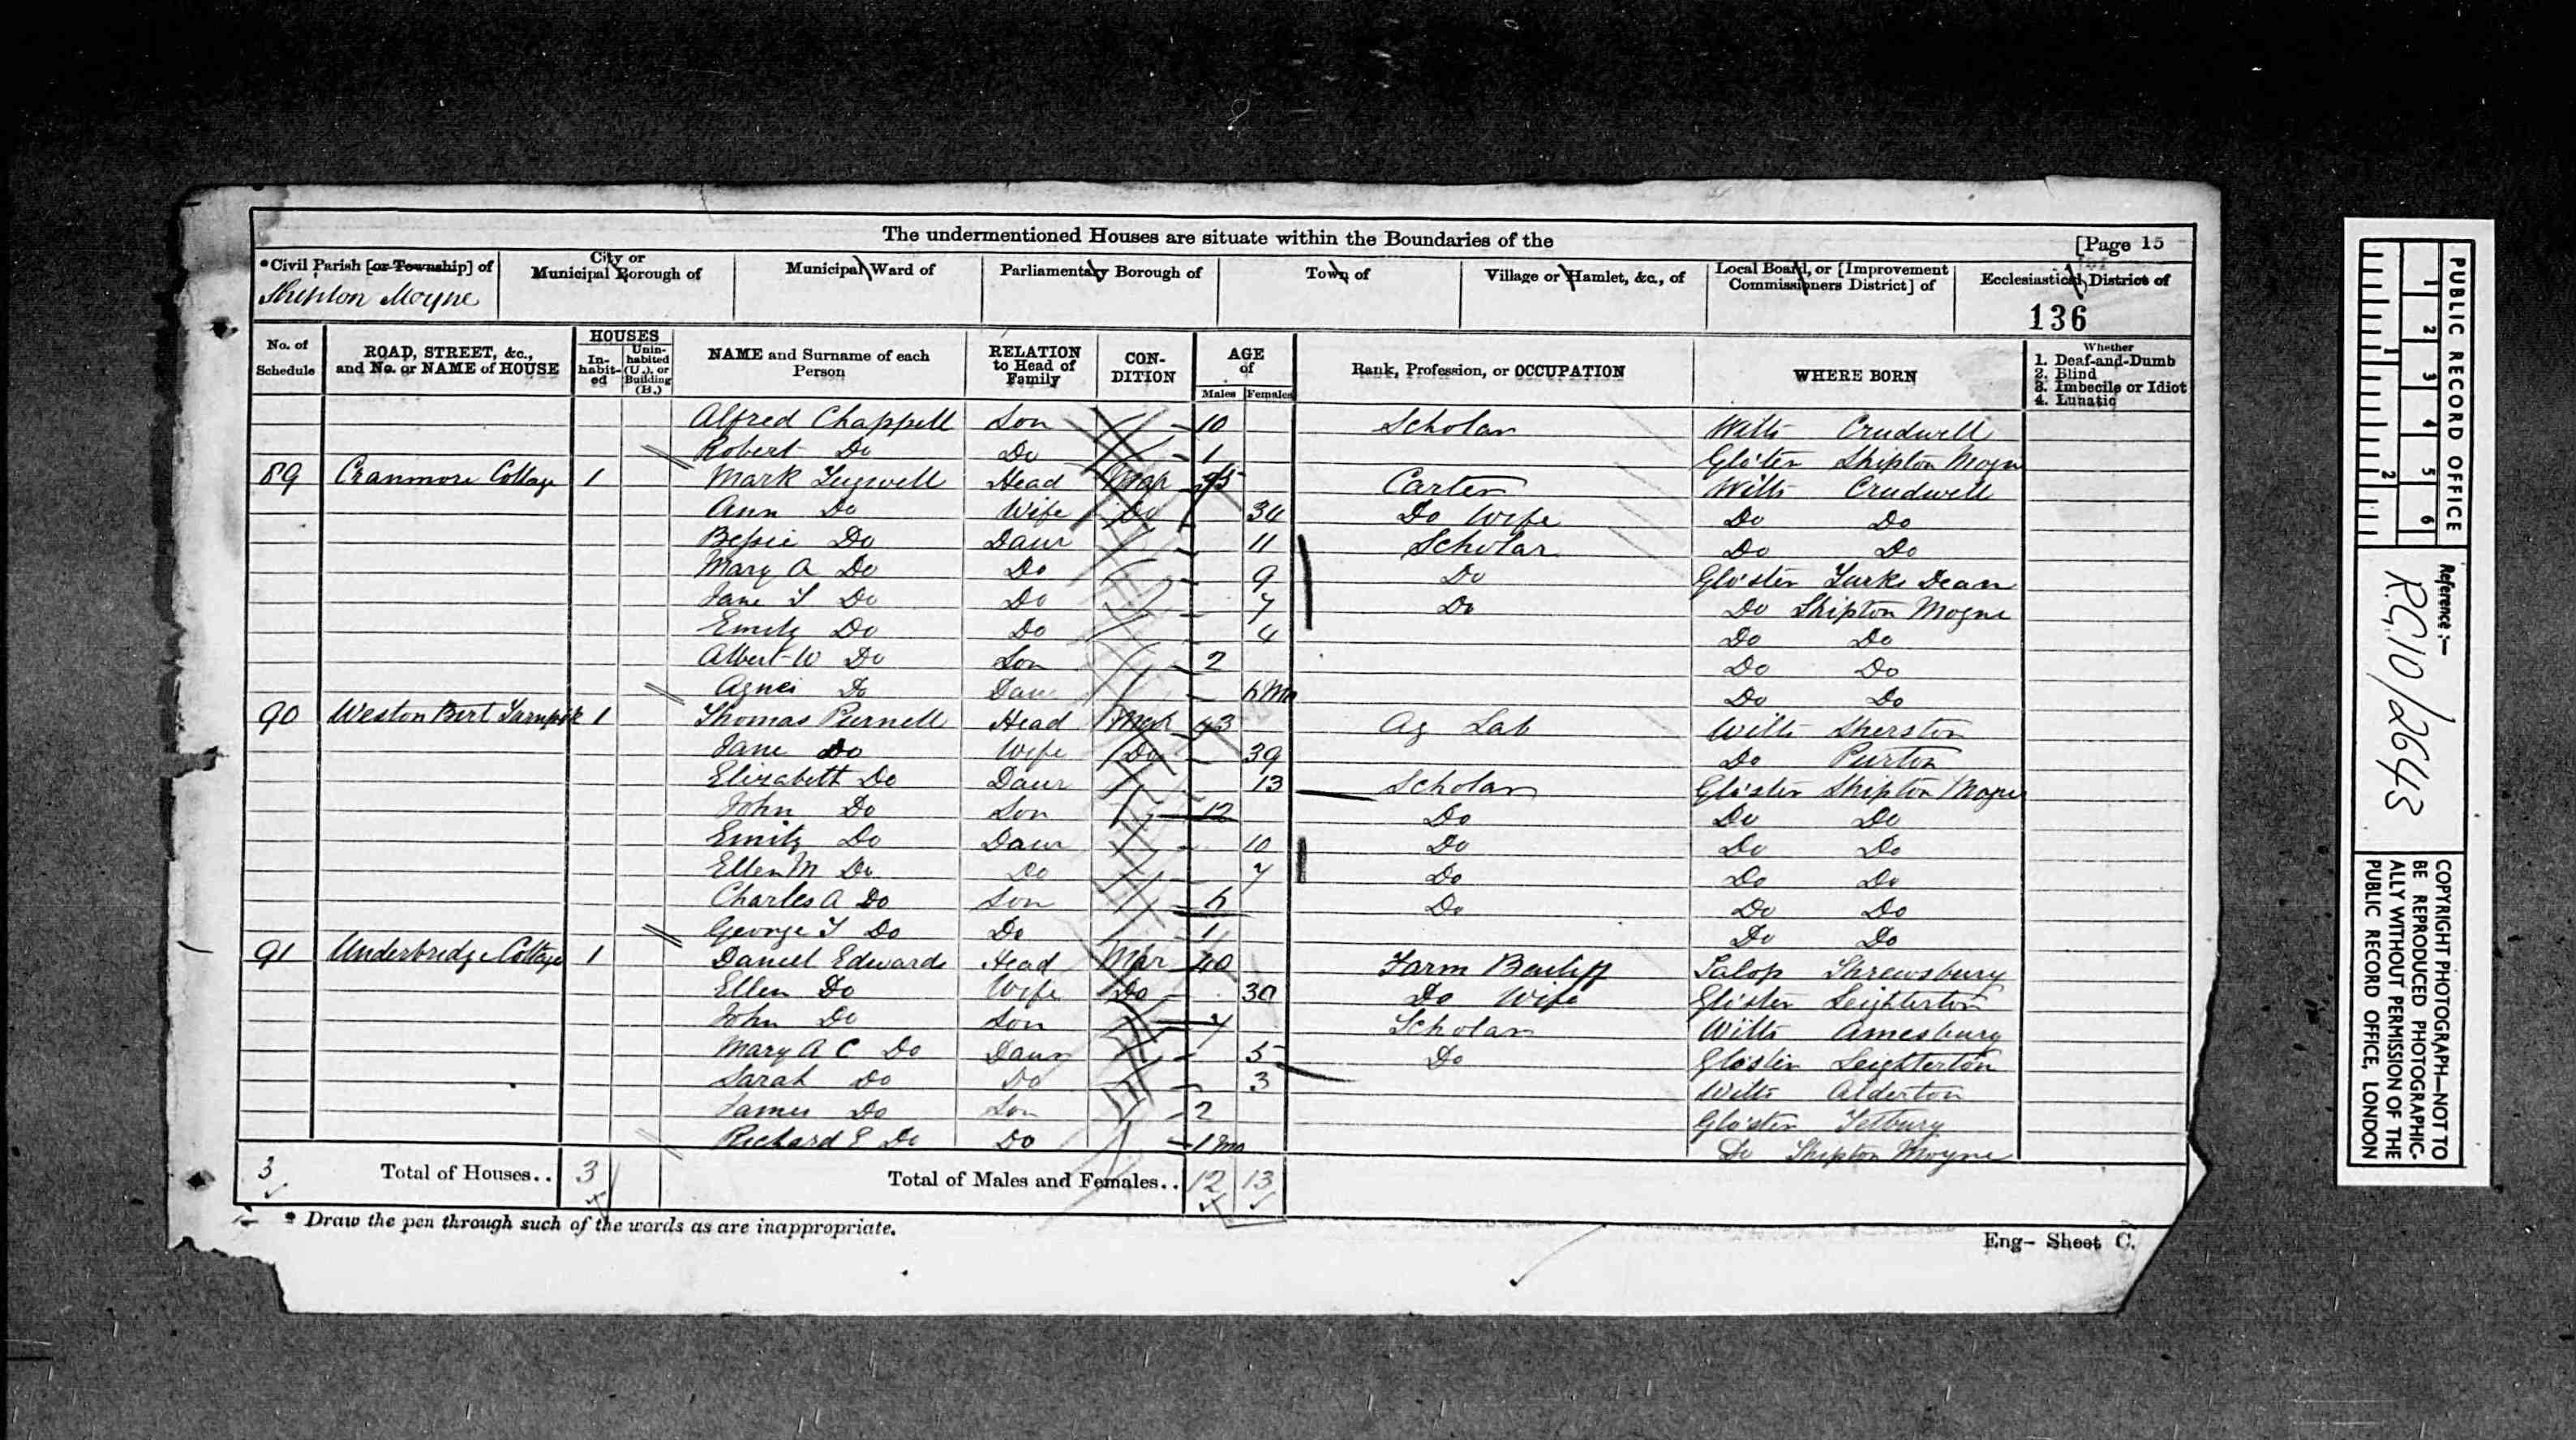 The undermentioned Houses are situate within the Boundaries of the
[Page 15
*Civil Parish [or Township] of
City or Municipal Borough of
Municipal Ward of
Parliamentary Borough of
Town of
Village or Hamlet, &c., of
Local Board, or [Improvement Commissioners District] of
Ecclesiastical District of
Shipton Moyne
136
No. of Schedule
ROAD, STREET, &c., and No. or NAME of HOUSE
HOUSES
In-habit-ed
Unin-habited (U.), or Building (B.)
NAME and Surname of each Person
RELATION to Head of Family
CON-DITION
AGE of
Males
Females
Rank, Profession, or OCCUPATION
WHERE BORN
Whether
1. Deaf-and-Dumb
2. Blind
3. Imbecile or Idiot
4. Lunatic
Alfred Chappell Son 10 Scholar Wilts Crudwell
Robert Do Do 1 Glo'ster Shipton Moyn
89 Cranmore Cottage 1 Mark Head Mar Carter Wilts Crudwell
Ann Do Wife Do 34 Do Wife Do Do
Bessie Do Daur 11 Scholar Do Do
Mary A Do Do 9 Do Glo'ster Turks Dean
Jane T Do Do 7 Do Do Shipton Moyne
Emily Do Do 4 Do Do
Albert W Do Son 2 Do Do
Agnes Do Daur 6 Mo Do Do
90 Weston Birt Turnpik 1 Thomas Purnell Head Mar 43 Ag Lab Wilts Sherston
Jane Do Wife Do 39 Do Purton
Elizabeth Do Daur 13 Scholar Glo'ster Shipton Moyne
John Do Son 12 Do Do Do
Emily Do Daur 10 Do Do Do
Ellen M Do Do 7 Do Do Do
Charles A Do Son 6 Do Do Do
George T Do Do 1 Do Do
91 Underbridge Cottage 1 Daniel Edwards Head Mar 40 Farm Bailiff Salop Shrewsbury
Ellen Do Wife Do 30 Do Wife Glo'ster Leighterton
John Do Son 7 Scholar Wilts Amesbury
Mary A C Do Daur 5 Do Glo'ster Leighterton
Sarah Do Do 3 Wilts Alderton
James Do Son 2 Glo'ster Tetbury
Richard E Do Do 1 mo Do Shipton Moyne
3 Total of Houses.. 3 Total of Males and Females.. 12 13
* Draw the pen through such of the words as are inappropriate.
Eng- Sheet C.
PUBLIC RECORD OFFICE
1 2 3 4 5 6
1 2
Reference :-
R.G.10/2643
COPYRIGHT PHOTOGRAPH—NOT TO
BE REPRODUCED PHOTOGRAPHIC-
ALLY WITHOUT PERMISSION OF THE
PUBLIC RECORD OFFICE, LONDON